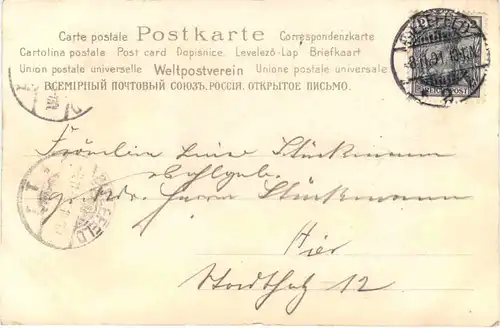 Carte postale Postkarte Correspondenzkarte
Cartolina postale Post card Dopisnice. Levelező-Lap Briefkaart
Union postale universelle Weltpostverein Unione postale universale
ВСЕМІРНЫЙ ПОЧТОВЫЙ СОЮЗЪ. РОССІЯ. ОТКРЫТОЕ ПИСЬМО.
Fräulein Stückmann
Herrn Stückmann
Hier
12